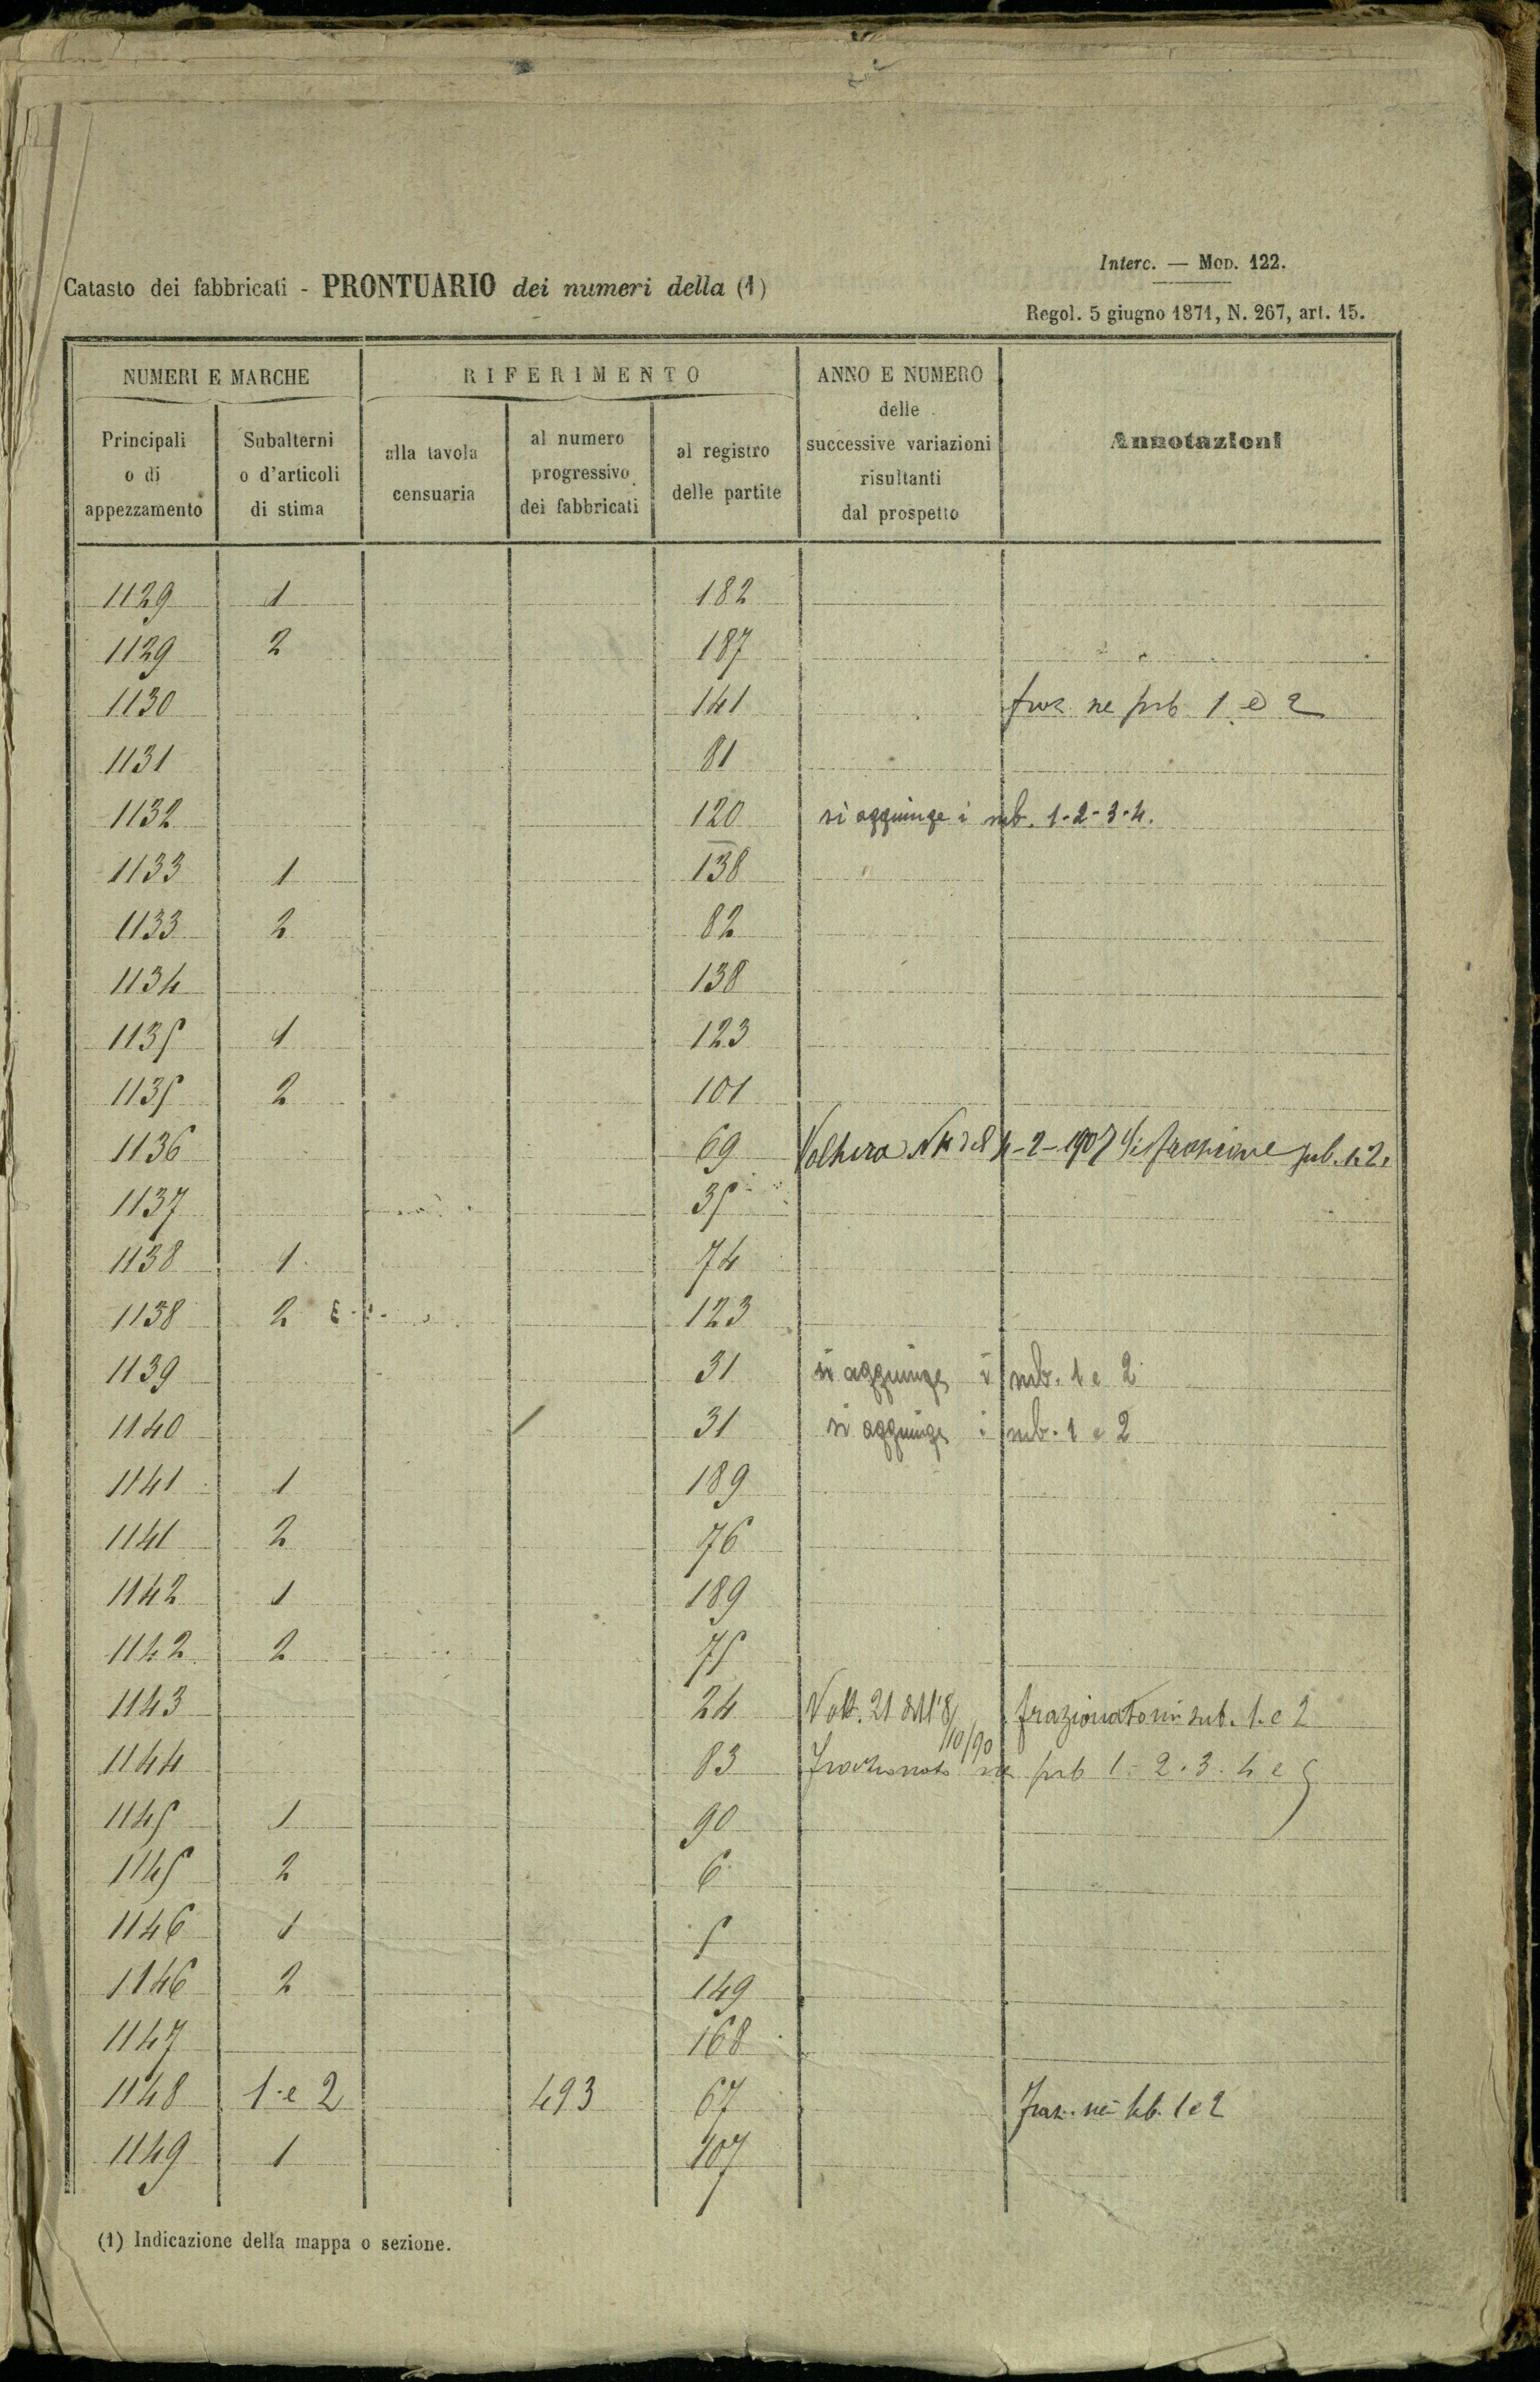 Interc. — Mod. 122.
Catasto dei fabbricati - PRONTUARIO dei numeri della (1)
Regol. 5 giugno 1871, N. 267, art. 15.
NUMERI E MARCHE RIFERIMENTO ANNO E NUMERO delle successive variazioni risultanti dal prospetto Annotazioni
Principali o di appezzamento Subalterni o d'articoli di stima alla tavola censuaria al numero progressivo dei fabbricati al registro delle partite
1129 1 182
1129 2 187
1130 141 fraz ne sub 1 e 2
1131 81
1132 120 si aggiunge i sub. 1-2-3-4.
1133 1 138
1133 2 82
1134 138
1135 1 123
1135 2 101
1136 69 Voltura N 4 del 4-2-1907 sub. 1.2.
1137 35
1138 1 74
1138 2 123
1139 31 si aggiunge i sub. 1 e 2
1140 31 si aggiunge i sub. 1 e 2
1141 1 189
1141 2 76
1142 1 189
1142 2 75
1143 24 Volt. 21 dell'8/10/90 frazionato in sub. 1. e 2
1144 83 Frazionato ne sub 1-2.3.4 e 5
1145 1 90
1145 2 6
1146 1 5
1146 2 149
1147 168
1148 1 e 2 493 67 Fraz. nei sub. 1 e 2
1149 1 107
(1) Indicazione della mappa o sezione.